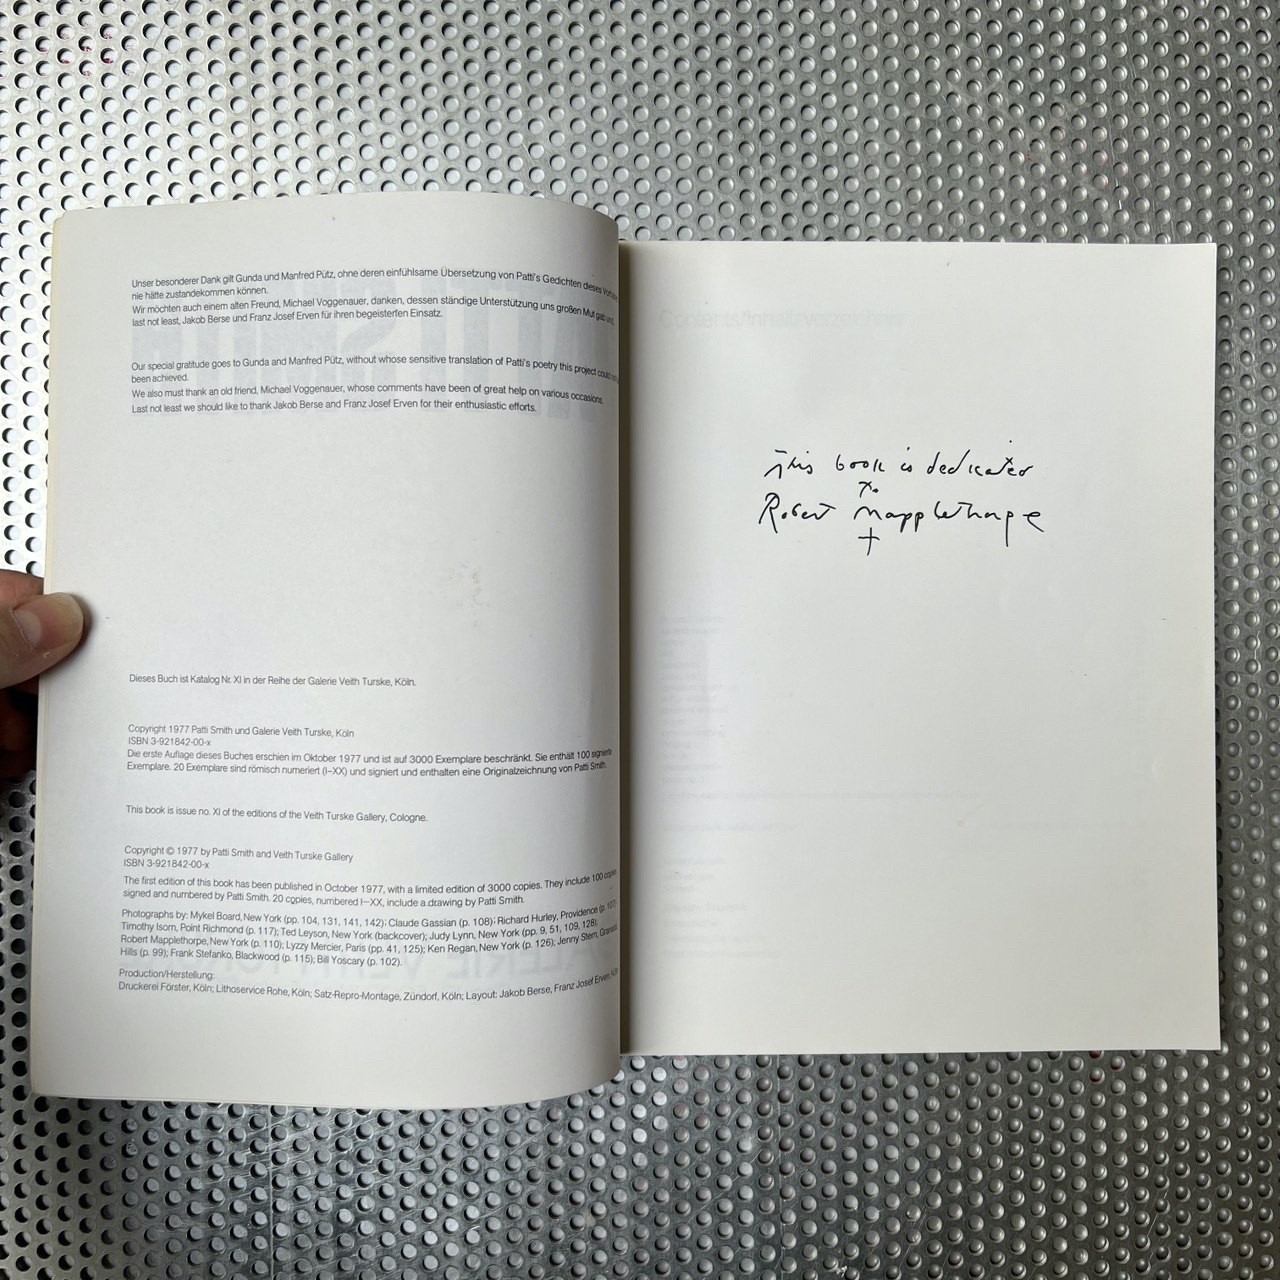 Unser besonderer Dank gilt Gunda und Manfred Pütz, ohne deren einfühlsame Übersetzung von Patti's Gedichten dieses
nie hätte zustandekommen können.
Wir möchten auch einem alten Freund, Michael Voggenauer, danken, dessen ständige Unterstützung uns großen Mut gab und,
last not least, Jakob Berse und Franz Josef Erven für ihren begeisterten Einsatz.
Our special gratitude goes to Gunda and Manfred Pütz, without whose sensitive translation of Patti's poetry this project could
been achieved.
We also must thank an old friend, Michael Voggenauer, whose comments have been of great help on various occasions.
Last not least we should like to thank Jakob Berse and Franz Josef Erven for their enthusiastic efforts.
Dieses Buch ist Katalog Nr. XI in der Reihe der Galerie Veith Turske, Köln.
Copyright 1977 Patti Smith und Galerie Veith Turske, Köln
ISBN 3-921842-00-x
Die erste Auflage dieses Buches erschien im Oktober 1977 und ist auf 3000 Exemplare beschränkt. Sie enthält 100 signierte
Exemplare. 20 Exemplare sind römisch numeriert (I–XX) und signiert und enthalten eine Originalzeichnung von Patti Smith.
This book is issue no. XI of the editions of the Veith Turske Gallery, Cologne.
Copyright © 1977 by Patti Smith and Veith Turske Gallery
ISBN 3-921842-00-x
The first edition of this book has been published in October 1977, with a limited edition of 3000 copies. They include 100 copies
signed and numbered by Patti Smith. 20 copies, numbered I–XX, include a drawing by Patti Smith.
Photographs by: Mykel Board, New York (pp. 104, 131, 141, 142); Claude Gassian (p. 108); Richard Hurley, Providence (p. 107)
Timothy Isorn, Point Richmond (p. 117); Ted Leyson, New York (backcover); Judy Lynn, New York (pp. 9, 51, 109, 128);
Robert Mapplethorpe, New York (p. 110); Lyzzy Mercier, Paris (pp. 41, 125); Ken Regan, New York (p. 126); Jenny Stern,
Hills (p. 99); Frank Stefanko, Blackwood (p. 115); Bill Yoscary (p. 102).
Production/Herstellung:
Druckerei Förster, Köln; Lithoservice Rohe, Köln; Satz-Repro-Montage, Zündorf, Köln; Layout: Jakob Berse, Franz Josef Erven,
Contents/Inhaltsverzeichnis
This book is dedicated
to
Robert Mapplethorpe